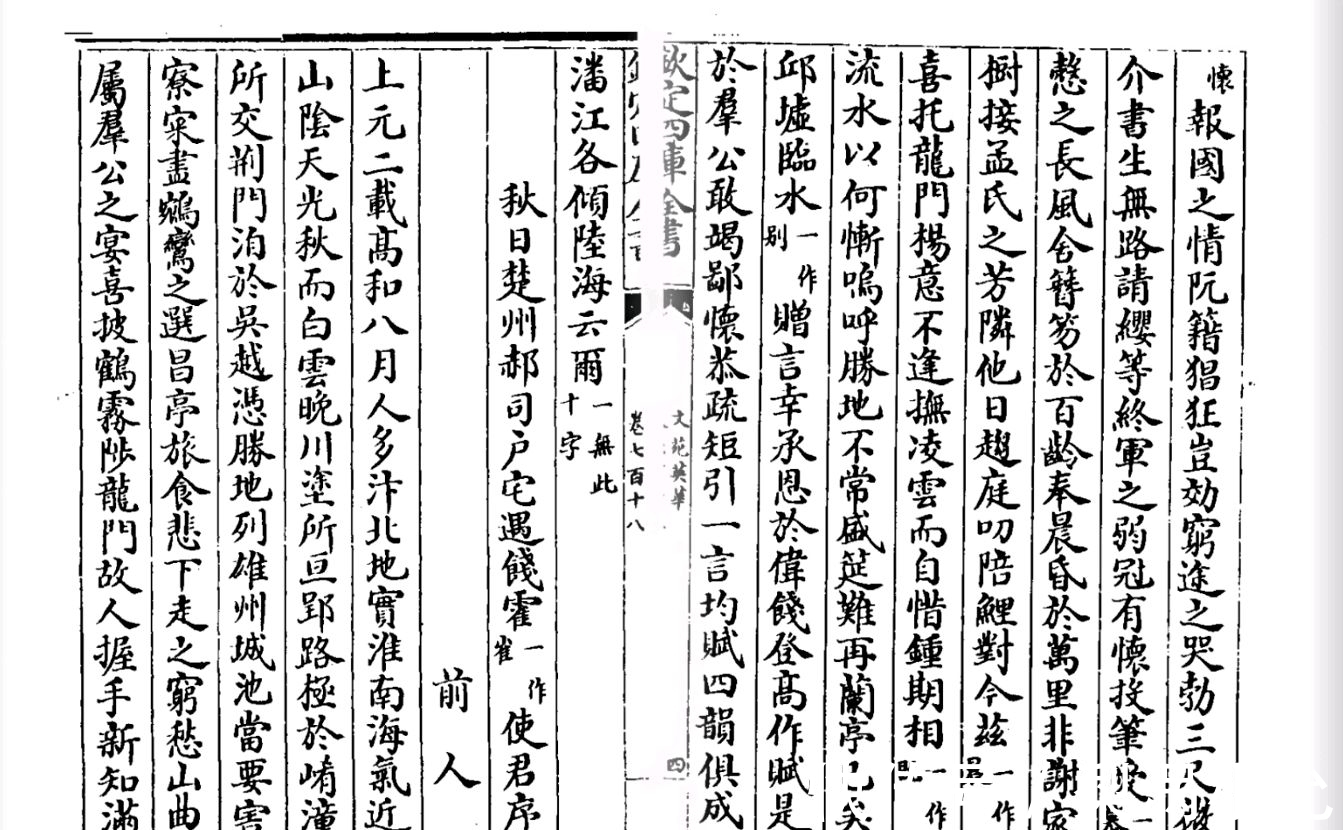 懷報國之情阮籍猖狂豈効窮途之哭勃三尺微
介書生無路請纓等終軍之弱冠有懷投筆愛一慕
慤之長風舍簪笏於百齡奉晨昏於萬里非謝家
樹接孟氏之芳隣他日趨庭叨陪鯉對今兹一作
喜托龍門楊意不逢撫凌雲而自惜鍾期相一作
流水以何慚嗚呼勝地不常盛筵難再蘭亭已矣
邱墟臨水一作别贈言幸承恩於偉餞登高作賦是
於羣公敢竭鄙懷恭疏短引一言均賦四韻俱成
欽定四庫全書
文苑英華
卷七百十八
四
潘江各傾陸海云爾一無此十字
秋日楚州郝司户宅遇餞霍一作崔使君序
前人
上元二載高和八月人多汴北地實淮南海氣近
山陰天光秋而白雲晚川塗所亘郢路極於崤潼
所交荆門洎於吳越憑勝地列雄州城池當要害
寮寀盡鵷鸞之選昌亭旅食悲下走之窮愁山曲
屬羣公之宴喜披鶴霧陟龍門故人握手新知滿